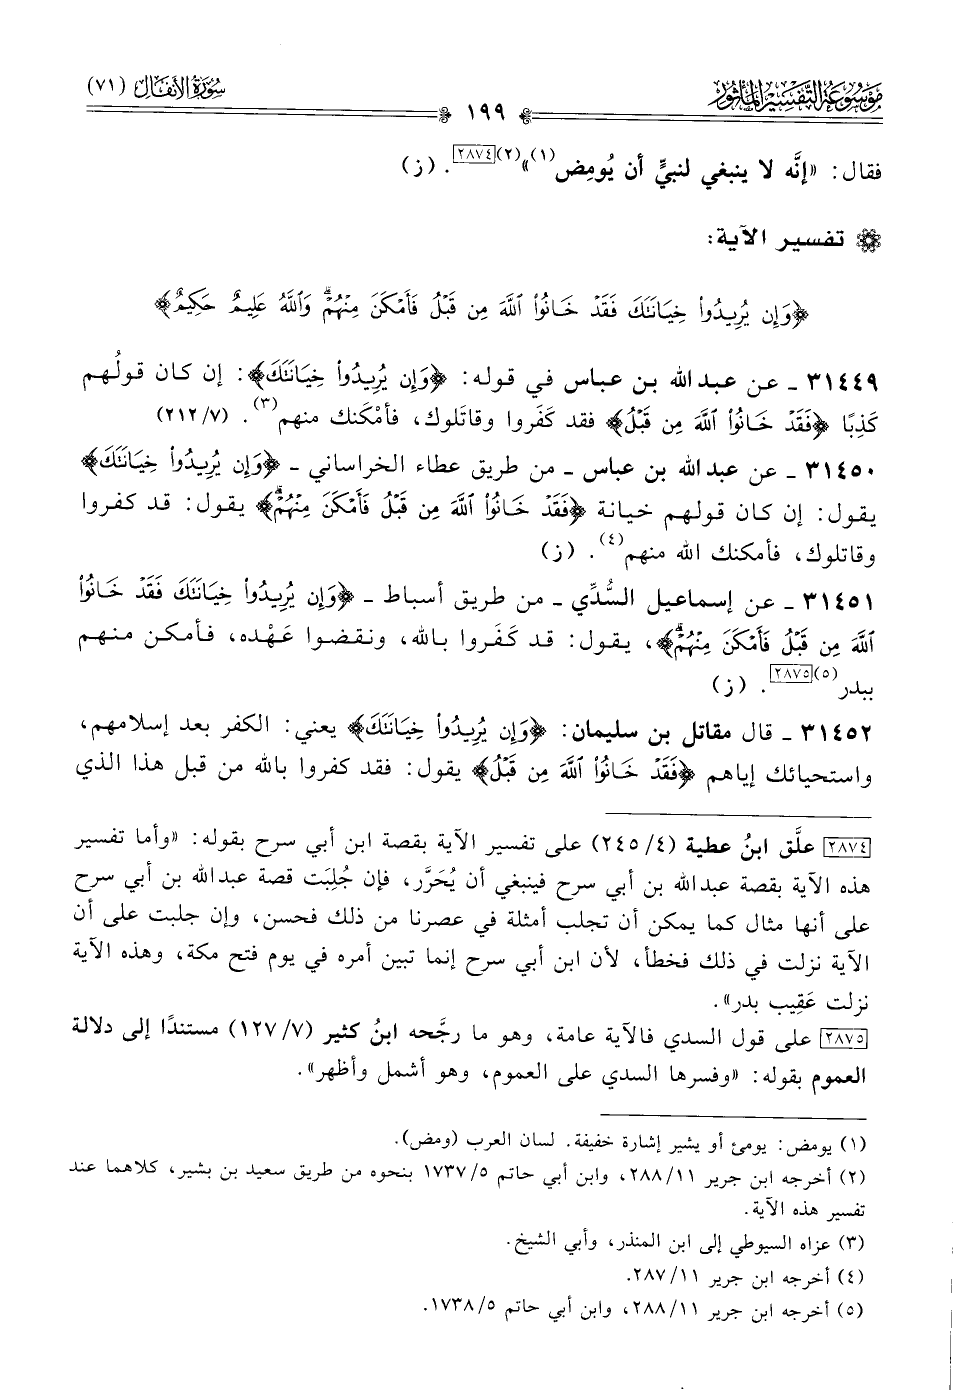 موسوعة التفسير المأثور
سورة الأنفال (٧١)
١٩٩
فقال: «إنَّه لا ينبغي لنبيٍّ أن يُومِض(١)»(٢)[٢٨٧٤]. (ز)
تفسير الآية:
﴿وَإِن يُرِيدُوا۟ خِيَانَتَكَ فَقَدْ خَانُوا۟ ٱللَّهَ مِن قَبْلُ فَأَمْكَنَ مِنْهُمْۗ وَٱللَّهُ عَلِيمٌ حَكِيمٌ﴾
٣١٤٤٩ ـ عـن عبـد الله بـن عبـاس في قولـه: ﴿وَإِن يُرِيدُوا۟ خِيَانَتَكَ﴾: إن كان قولُهم
كَذِبًا ﴿فَقَدْ خَانُوا۟ ٱللَّهَ مِن قَبْلُ﴾ فقد كَفَروا وقاتَلوك، فأمْكَنك منهم(٣). (٢١٢/٧)
٣١٤٥٠ ـ عن عبد الله بن عباس ـ من طريق عطاء الخراساني ـ ﴿وَإِن يُرِيدُوا۟ خِيَانَتَكَ﴾
يقول: إن كان قولهم خيانة ﴿فَقَدْ خَانُوا۟ ٱللَّهَ مِن قَبْلُ فَأَمْكَنَ مِنْهُمْۗ﴾ يقول: قد كفروا
وقاتلوك، فأمكنك الله منهم(٤). (ز)
٣١٤٥١ ـ عن إسماعيل السُّدِّي ـ من طريق أسباط ـ ﴿وَإِن يُرِيدُوا۟ خِيَانَتَكَ فَقَدْ خَانُوا۟
ٱللَّهَ مِن قَبْلُ فَأَمْكَنَ مِنْهُمْۗ﴾، يقول: قد كَفَروا بالله، ونقضوا عَهْده، فأمكن منهم
ببدر(٥)[٢٨٧٥]. (ز)
٣١٤٥٢ ـ قال مقاتل بن سليمان: ﴿وَإِن يُرِيدُوا۟ خِيَانَتَكَ﴾ يعني: الكفر بعد إسلامهم،
واستحيائك إياهم ﴿فَقَدْ خَانُوا۟ ٱللَّهَ مِن قَبْلُ﴾ يقول: فقد كفروا بالله من قبل هذا الذي
[٢٨٧٤] علَّق ابنُ عطية (٢٤٥/٤) على تفسير الآية بقصة ابن أبي سرح بقوله: «وأما تفسير
هذه الآية بقصة عبدالله بن أبي سرح فينبغي أن يُحَرَّر، فإن جُلِبَت قصة عبدالله بن أبي سرح
على أنها مثال كما يمكن أن تجلب أمثلة في عصرنا من ذلك فحسن، وإن جلبت على أن
الآية نزلت في ذلك فخطأ، لأن ابن أبي سرح إنما تبين أمره في يوم فتح مكة، وهذه الآية
نزلت عَقِيب بدر».
[٢٨٧٥] على قول السدي فالآية عامة، وهو ما رجَّحه ابنُ كثير (١٢٧/٧) مستندًا إلى دلالة
العموم بقوله: «وفسرها السدي على العموم، وهو أشمل وأظهر».
(١) يومض: يومئ أو يشير إشارة خفيفة. لسان العرب (ومض).
(٢) أخرجه ابن جرير ٢٨٨/١١، وابن أبي حاتم ١٧٣٧/٥ بنحوه من طريق سعيد بن بشير، كلاهما عند
تفسير هذه الآية.
(٣) عزاه السيوطي إلى ابن المنذر، وأبي الشيخ.
(٤) أخرجه ابن جرير ٢٨٧/١١.
(٥) أخرجه ابن جرير ٢٨٨/١١، وابن أبي حاتم ١٧٣٨/٥.